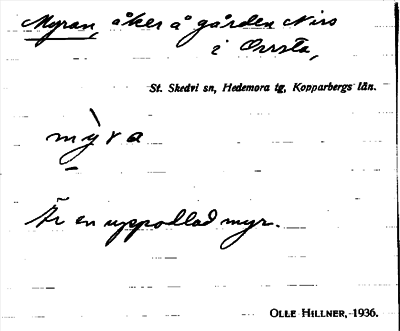 Myran, åker å gården Nirs
i Orrsta,
St. Skedvi sn, Hedemora tg, Kopparbergs län.
mỳra
Är en uppodlad myr.
OLLE HILLNER, 1936.